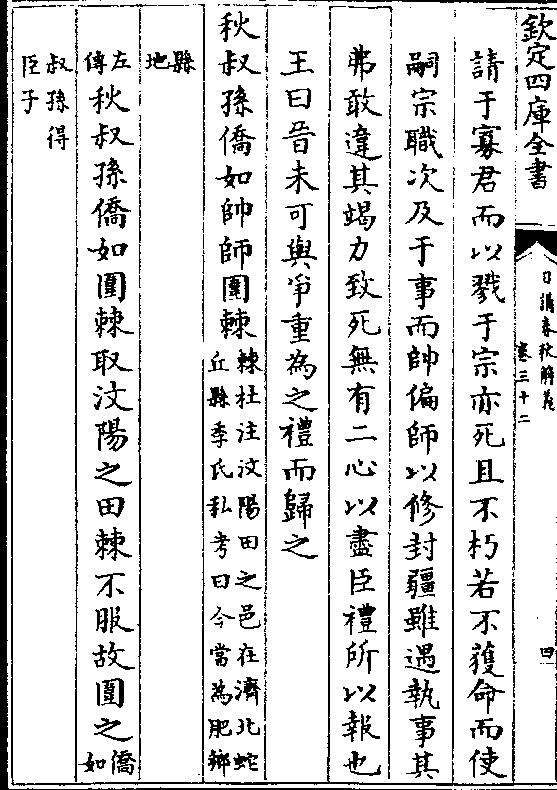 欽定四庫全書
日講春秋解義
卷三十二
四
請于寡君而以戮于宗亦死且不朽若不獲命而使
嗣宗職次及于事而帥偏師以修封疆雖遇執事其
弗敢違其竭力致死無有二心以盡臣禮所以報也
王曰晉未可與爭重為之禮而歸之
秋叔孫僑如帥師圍棘
棘杜注汶陽田之邑在濟北蛇
丘縣季氏私考曰今當為肥鄉
縣
地
左
傳
秋叔孫僑如圍棘取汶陽之田棘不服故圍之
僑
如
叔孫得
臣子